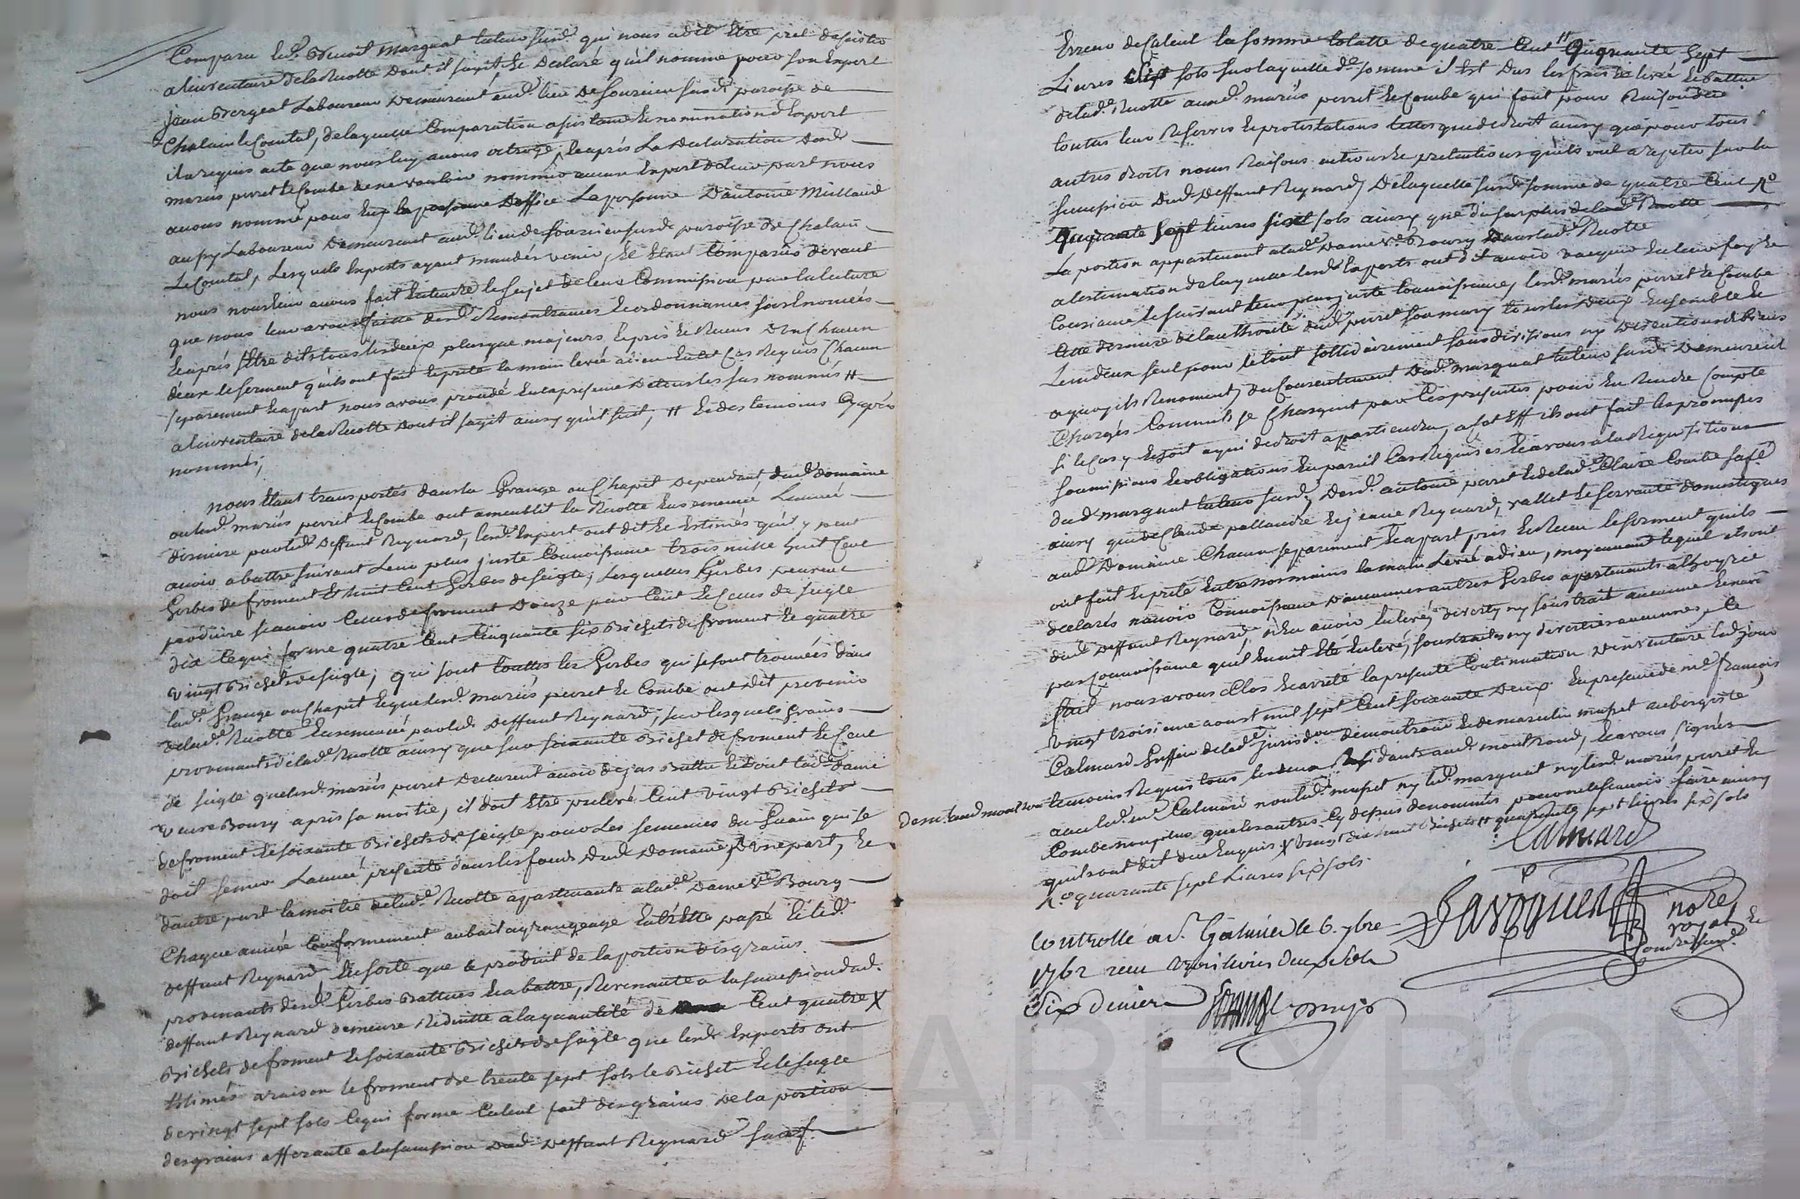 Comparu led. Benoit Marquat tuteur susd. qui nous a dit être pret dassister
a linventaire de la Recolte dont il sagit et declaré quil nomme pour son Expert
jean Bergeat Laboureur demeurant aud. lieu de fourneu susd. paroisse de
Chalain le Comtal, de laquelle Comparution assistance et nomination dExpert
il a requis acte que nous luy avons octroyé, et après La declaration desd.
mariés perret et Combe de ne vouloir nommer aucun Expert de leur part nous
avons nommé pour Eux doffice La personne Dantoine Milland
aussy Laboureur demeurant aud. lieu de fourneu susd. paroisse de Chalain
Le Comtal, Lesquels Experts ayant mandés venir, et Etant Comparus devant
nous nous leur avons fait Entendre le sujet de leur Commission par la lecture
que nous leur avons faitte desd. Remontrances et ordonnances sus Enoncées
et après Etre dits tous les deux plus que majeurs et pris et Receus dun Chacun
deux le serment quils ont fait et prêté la main levée a dieu En tel Cas Requis Chacun
separement et a part nous avons procedé En la presence de tous les sus nommés #
a linventaire de la Recolte dont il sagit ainsy quil suit, # et des temoins Cy après
nommés,
nous Etant transportés dans la Grange ou Chapit dependant dud. domaine
ou lesd. mariés perret et Combe ont ameublit la Recolte Ensemencée Lannée
derniere par led. deffunt Reynard, lesd. Expert ont dit et Estimés quil y peut
avoir a battre suivant leur plus juste Connoissance trois mille huit Cent
Gerbes de froment et huit Cent Gerbes de seigle, lesquelles Gerbes peuvent
produire scavoir Celles de froment Douze pour Cent et Celles de seigle
dix Cequi forme quatre Cent Cinquante six Bichets de froment et quatre
vingt Bichets de seigle, qui sont touttes les Gerbes qui se sont trouvées dans
lad. Grange ou Chapit et que lesd. mariés perret et Combe ont dit provenir
delad. Recolte Ensemencée par led. deffunt Reynard, sur lesquels Grains
provenants delad. Recolte ainsy que sur soixante Bichet de froment et Cent
de seigle que lesd. mariés perret Declarent avoir dejas Battu et dont lad. Dame
veuve Boury a pris sa moitié, il doit Etre prelevé Cent vingt Bichets
de froment et soixante Bichets de seigle pour Les semences du Grain qui se
doit semer Lannée presente dans les fonds dud. Domaine, Dune part, et
dautre part la moitié delad. Recolte apartenante a lad. Dame ve. Boury
Chaque année Conformement au bail a grangeage Entre Elle passé et led.
deffunt Reynard En sorte que le produit de la portion des grains
provenants desd. Gerbes Battues et a battre, Revenante a la succession dud.
deffunt Reynard demeure Reduitte a la quantité de Cent quatre X
Bichets de froment et soixante Bichets de seigle que lesd. Experts ont
Estimés a raison le froment de trente sept sols le Bichet et le seigle
de vingt sept sols Cequi forme Calcul fait des grains de la portion
des grains afferante a la succession dud. deffunt Reynard sauf
Erreur de Calcul la somme totalle de quatre Cent Quarante sept
Livres six sols sur laquelle de. somme il est Dus les frais de levée et Battue
delad. Recolte auxd. mariés perret et Combe qui font pour Raison de
toutes leur Reserves et protestations telles que de droit ainsy que pour tous
autres droits noms Raisons actions et pretentions quils ont a repeter sur la
succession dud. deffunt Reynard, De laquelle susd. somme de quatre Cent
Quarante sept Livres six sols ainsy que du surplus de lad. Recolte
La portion appartenant a lad. Dame ve. Boury dans lad. Recolte
a lestimation de laquelle lesd. Experts ont dit avoir vacqué En leur foy et
Conscience et suivant leur plus juste Connoissance, lesd. mariés perret et Combe
Cette derniere de lauthorité dud. perret son mary tous les deux Ensemble et
Lun deux seul pour le tout sollidairement sans divisions ny discutions de biens
a quoy ils Renoncent, du Consentement dud. Marquat tuteur susd. Demeurent
Chargés Commis et se Chargent par Ces presentes pour En Rendre Compte
si le Cas y Echoit a qui de droit apartiendra, a Cet Eff. ils ont fait les promesses
soumissions et obligations En pareil Cas Requises et avons a la Requisition
dud. marquat tuteur susd. desd. antoine perret et delad. Claire Combe sa fe.
ainsy que de Claude pallandre et jeanne Reynard, vallet et servante domestiques
aud. Domaine Chacun separement et a part pris et Receu le serment quils
ont fait et prêté Entre nos mains la main Levée a dieu, moyennant lequel ils ont
declarés navoir Connoissance daucunes autres Gerbes apartenants a lhoyrie
dud. deffunt Reynard, nEn avoir Enlevé, diverty ny soustrait aucune et navoir
pas Connoissance quil En ait Eté Enlevé, soustraites ny diverties aucunes, Ce
fait nous avons Clos et arreté la presente Continuation dinventaire led. jour
vingt troisieme aoust mil sept Cent soixante Deux En presence de me. francois
Calmard Greffier delad. jurisdon. demontrond et de masculin musset aubergiste
demt. aud. montrond temoins Requis tous les deux Residants aud. montrond, et avons signés
avec led. me. Calmard non led. musset ny led. marquat ny lesd. mariés perret et
Combe non plus que les autres Cy dessus denommés pour ne le scavoir faire ainsy
quils ont dit de ce Enquis X vingt dix huit Bichets # quarante sept livres six sols
quarante sept Livres six sols
Calmard
Javogues
nore
royal et
Commissaire.
Controllé a St. Galmier le 6. 7bre
1762 receu vingt livres deux sols
six deniers
CHAREYRON